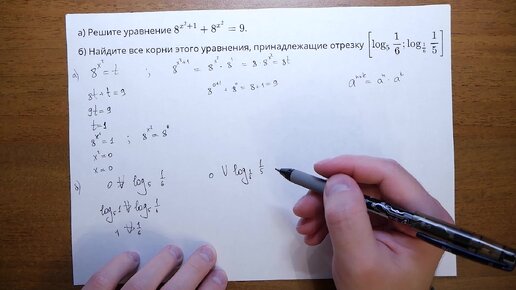 а) Решите уравнение 8^{x²+1} + 8^{x²} = 9.
б) Найдите все корни этого уравнения, принадлежащие отрезку [log₅ 1/6; log_{1/6} 1/5]
а) 8^{x²} = t ; 8^{x²+1} = 8^{x²} · 8¹ = 8 · 8^{x²} = 8t
8t + t = 9
8^{0+1} + 8⁰ = 8 + 1 = 9
9t = 9
t = 1
8^{x²} = 1 ; 8^{x²} = 8⁰
x² = 0
x = 0
б) 0 ∨ log₅ 1/6
0 ∨ log_{1/6} 1/5
log₅ 1 ∨ log₅ 1/6
1 ∨ 1/6